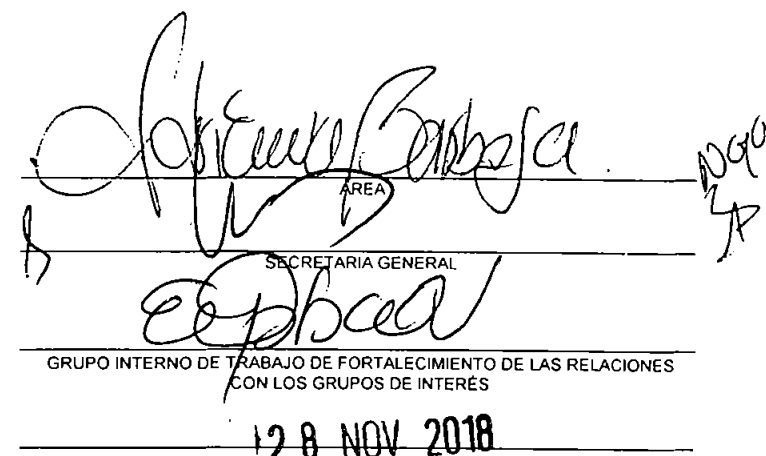 Adriana Barbosa
ÁREA
SECRETARIA GENERAL
GRUPO INTERNO DE TRABAJO DE FORTALECIMIENTO DE LAS RELACIONES
CON LOS GRUPOS DE INTERÉS
28 NOV 2018